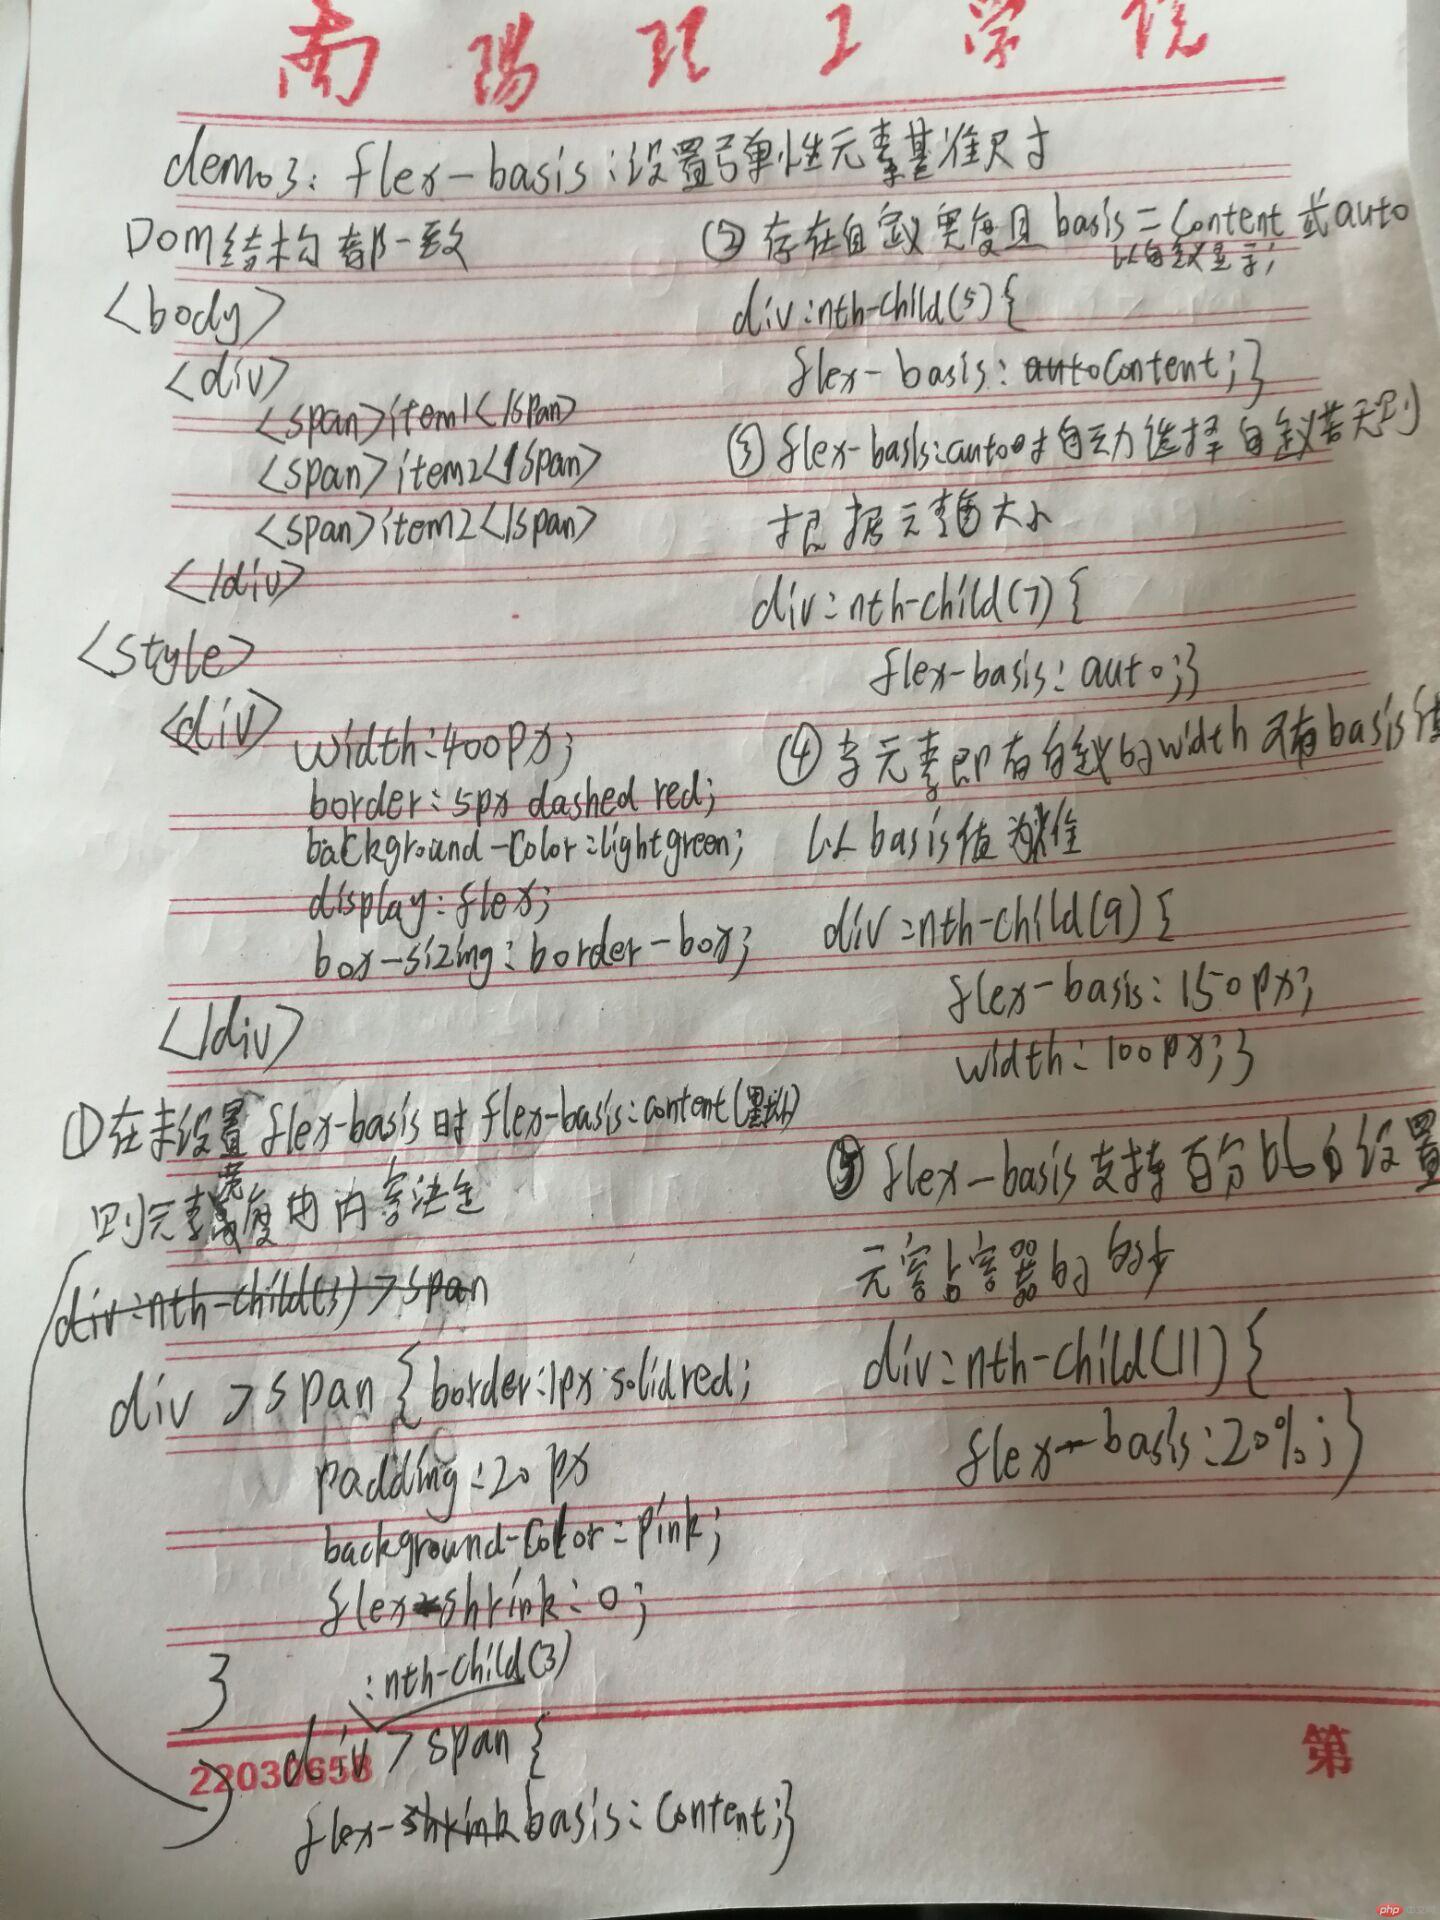 南陽理工学院
demo3: flex-basis:设置弹性元素基准尺寸
DOM结构都一致
<body>
<div>
<span>item1</span>
<span>item2</span>
<span>item2</span>
</div>
<style>
<div>
width:400px;
border:5px dashed red;
background-color:lightgreen;
display:flex;
box-sizing:border-box;
</div>
①在未设置flex-basis时flex-basis:content(默认)
则元素宽度由内容决定
div:nth-child(3)>span
div>span{border:1px solid red;
padding:20px
background-color:pink;
flex-shrink:0;
}
:nth-child(3)
div>span{
flex-shrink basis:content;}
②存在自定义宽度且basis=content或auto
以自定义显示;
div:nth-child(5){
flex-basis:auto content;}
③flex-basis:auto时自动选择自定义若无则
根据元素大小
div:nth-child(7){
flex-basis:auto;}
④当元素即有自定义的width又有basis值
以basis值为准
div:nth-child(9){
flex-basis:150px;
width:100px;}
⑤flex-basis支持百分比的设置
元素占容器的
div:nth-child(11){
flex-basis:20%;}
22030658
第
php中文网